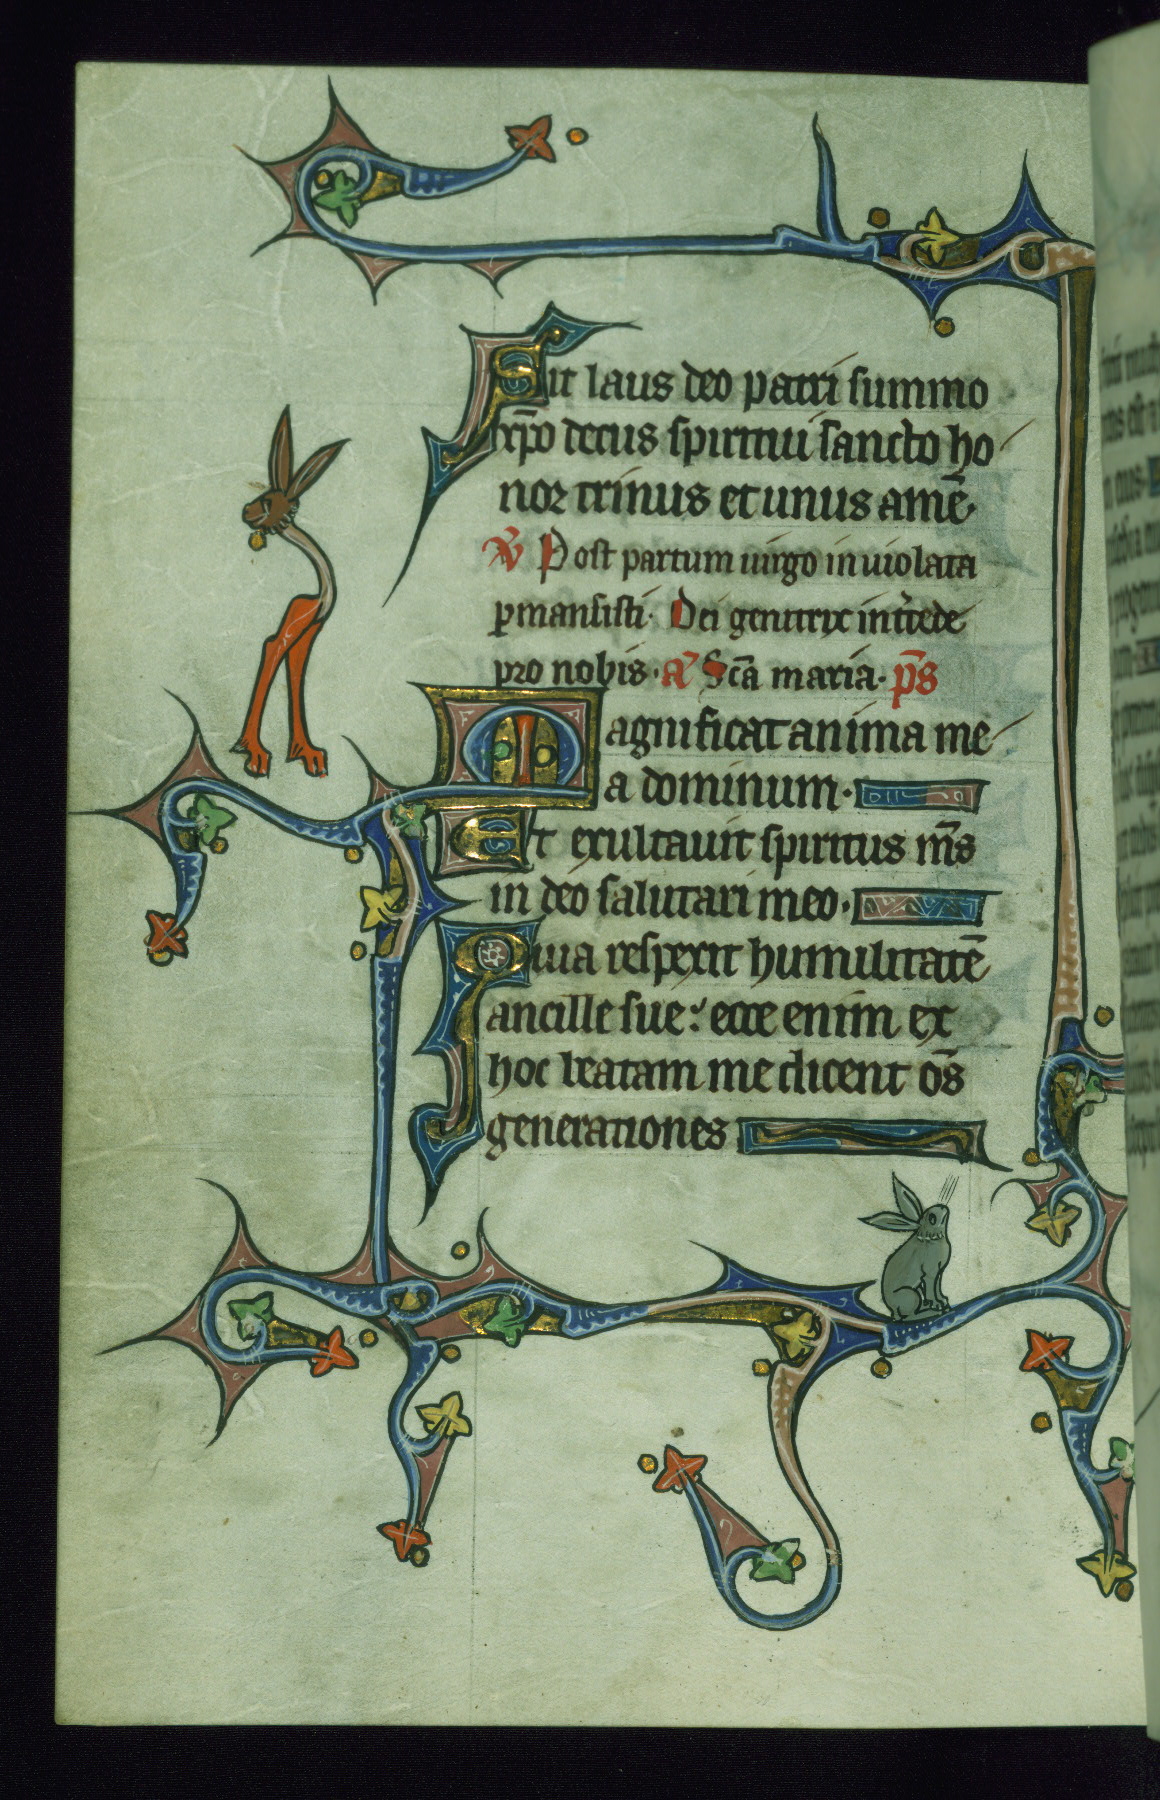 Sit laus deo patri summo
xp̄o decus spiritui sancto ho
nor trinus et unus amē.
V̄ Post partum uirgo inuiolata
ꝑmansisti. Dei genitrix int̄cede
pro nobis. a᷑ Sc̄a maria. p̄s
Magnificat anima me
a dominum.
Et exultauit spiritus m̄s
in deo salutari meo.
Quia respexit humilitatē
ancille sue: ecce enim ex
hoc beatam me dicent o᷑s
generationes